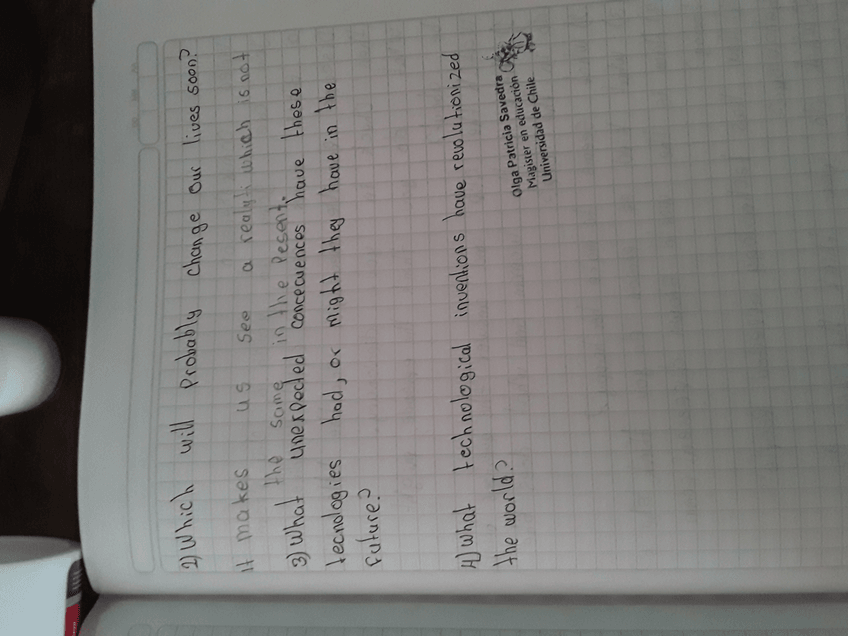 2) Which will Probably change our lives soon?
It makes us see a realyti which is not
the same in the Pesent.
3) What unexpected concecuences have these
tecnologies had, or might they have in the
future?
4) What technological inventions have revolutionized
the world?
Olga Patricia Savedra
Magister en educación
Universidad de Chile